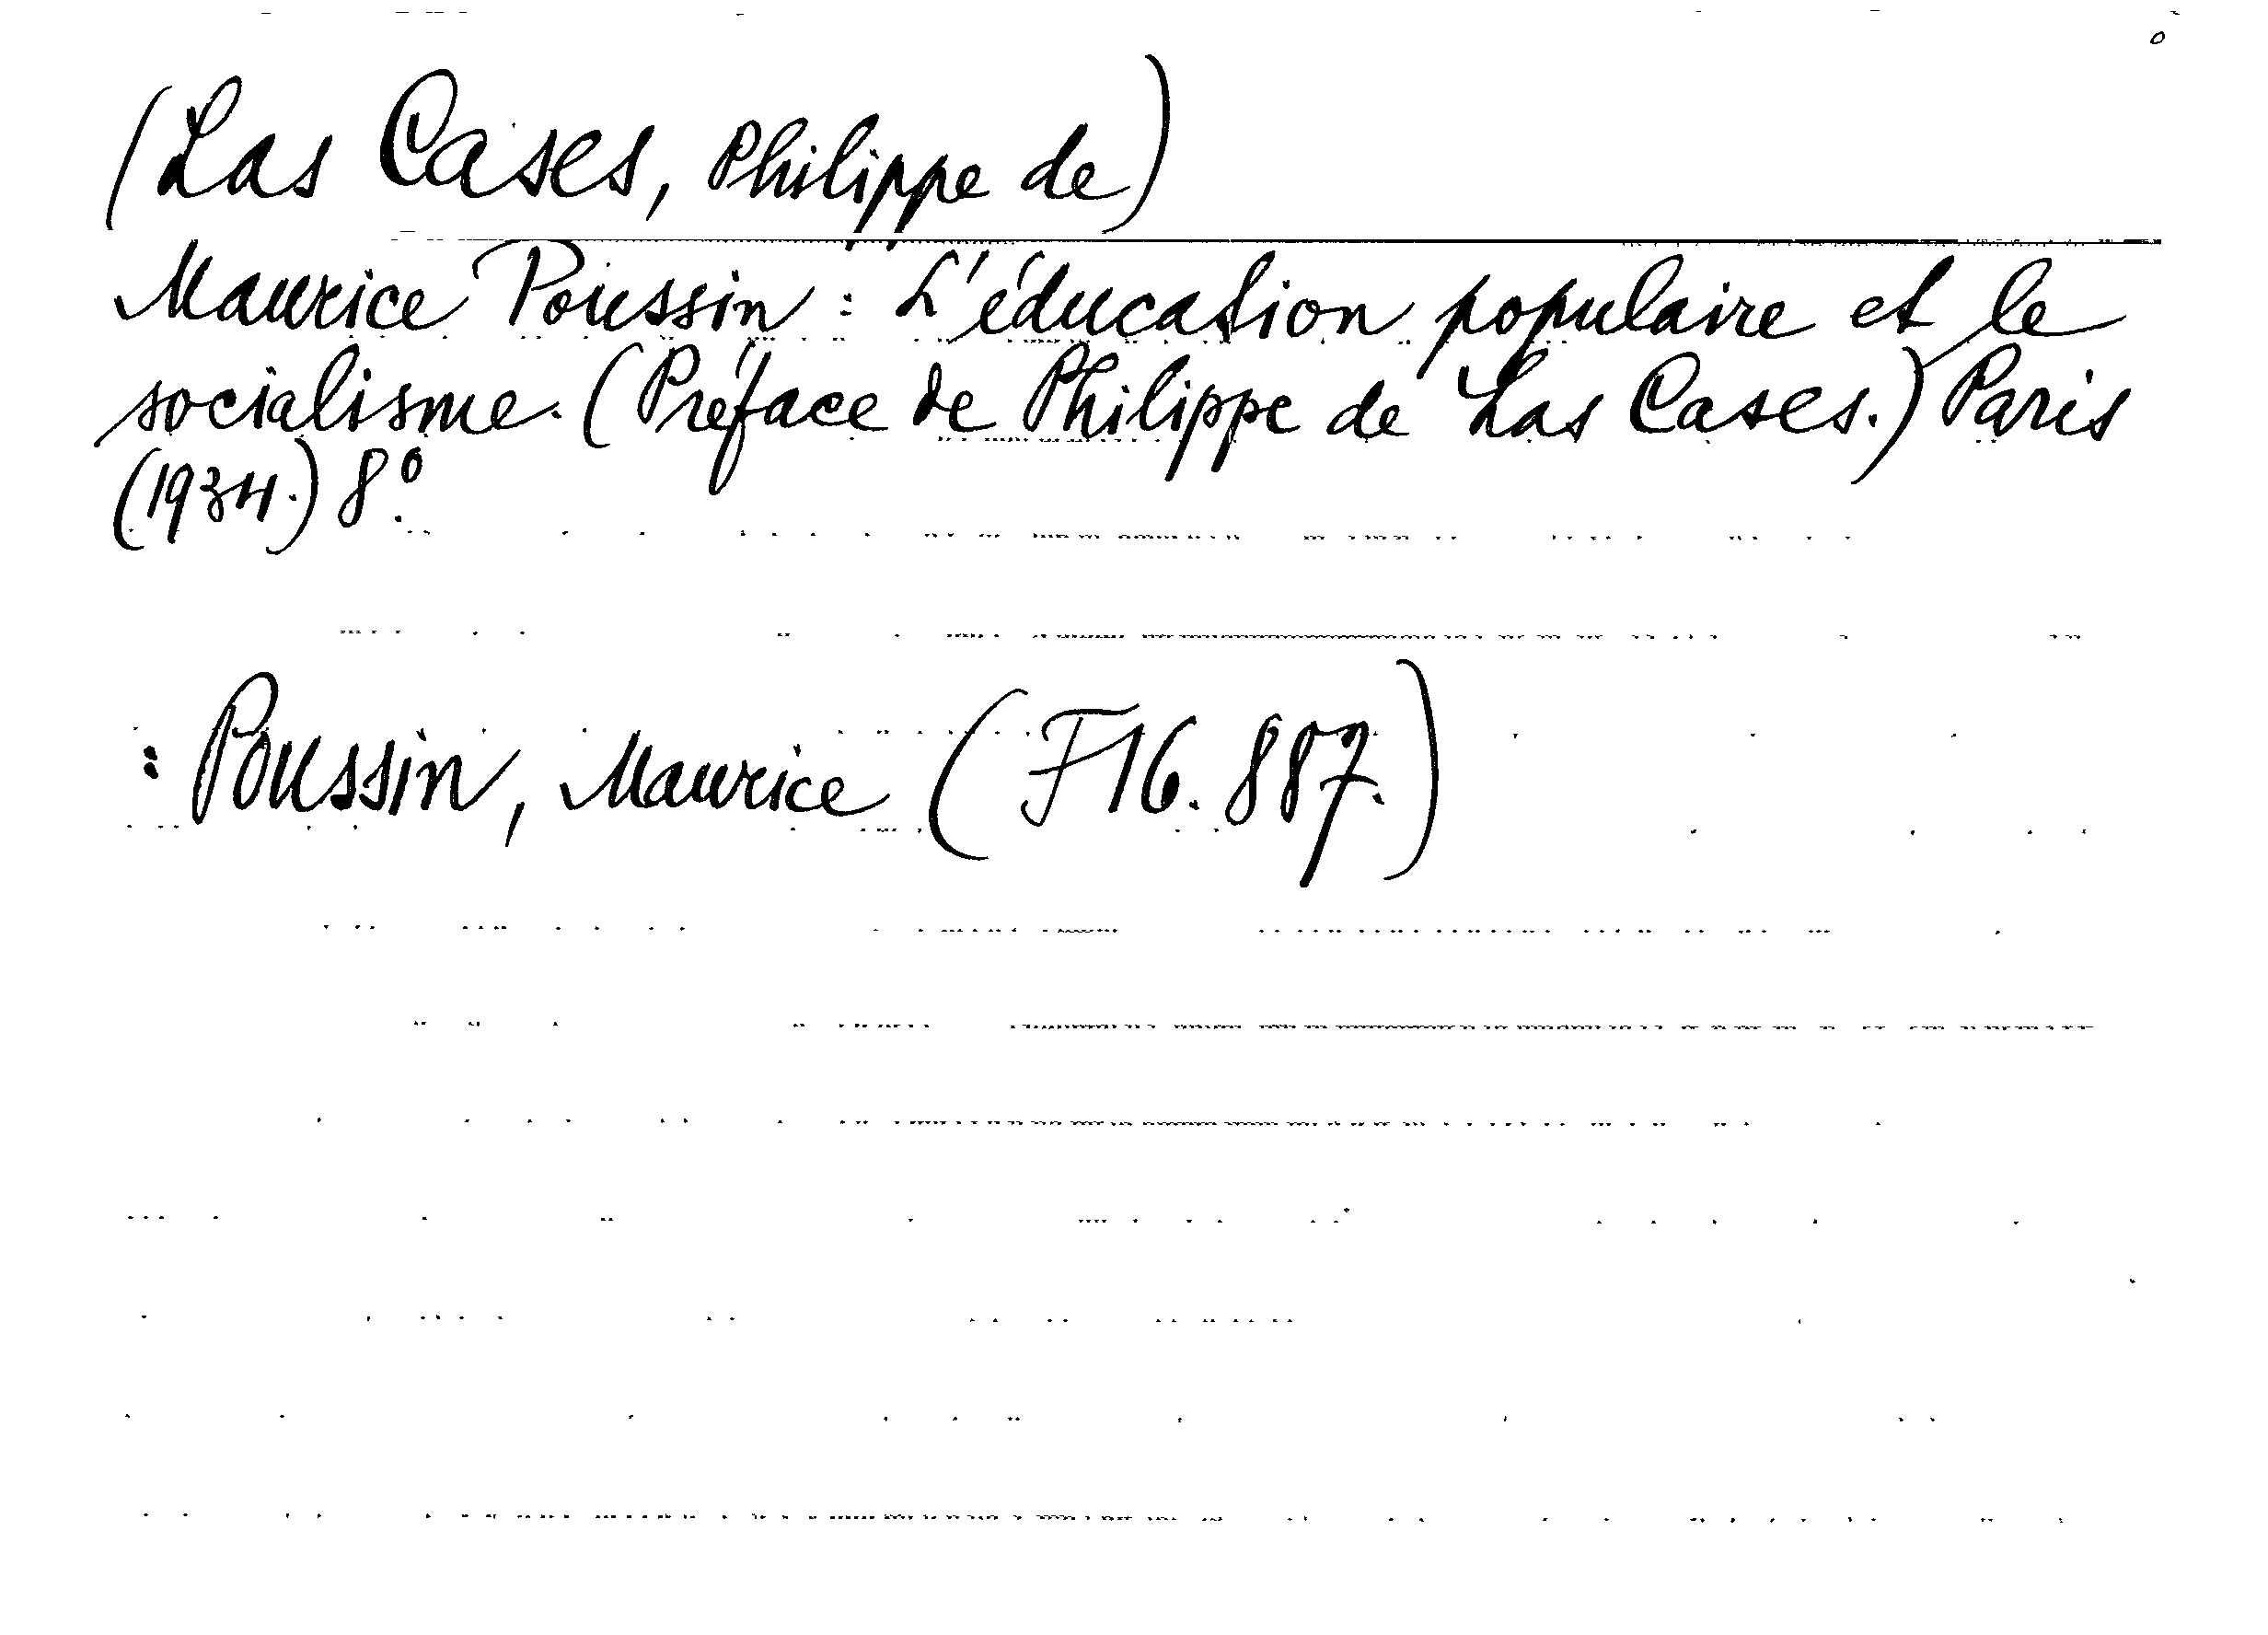 (Las Cases, Philippe de)
Maurice Poussin: L'éducation populaire et le
socialisme. (Préface de Philippe de Las Cases.) Paris
(1934.) 8°.
: Poussin, Maurice (F16.887.)